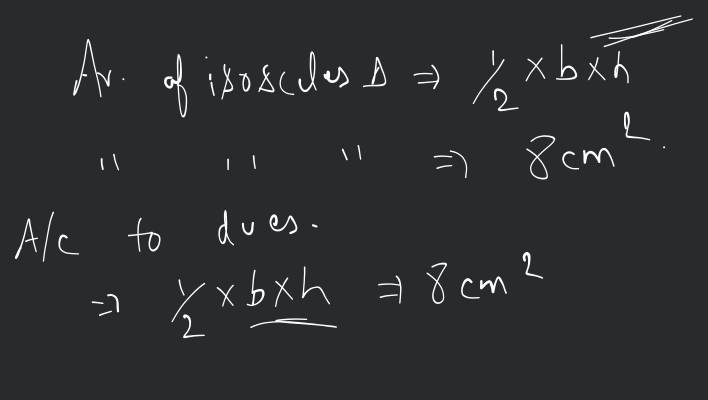 Ar. of isoscles Δ ⇒ 1/2 × b × h
" " " ⇒ 8 cm².
A/c to dues.
⇒ 1/2 × b × h ⇒ 8 cm²